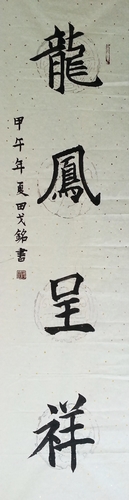 龍鳳呈祥
甲午年夏田戈銘書